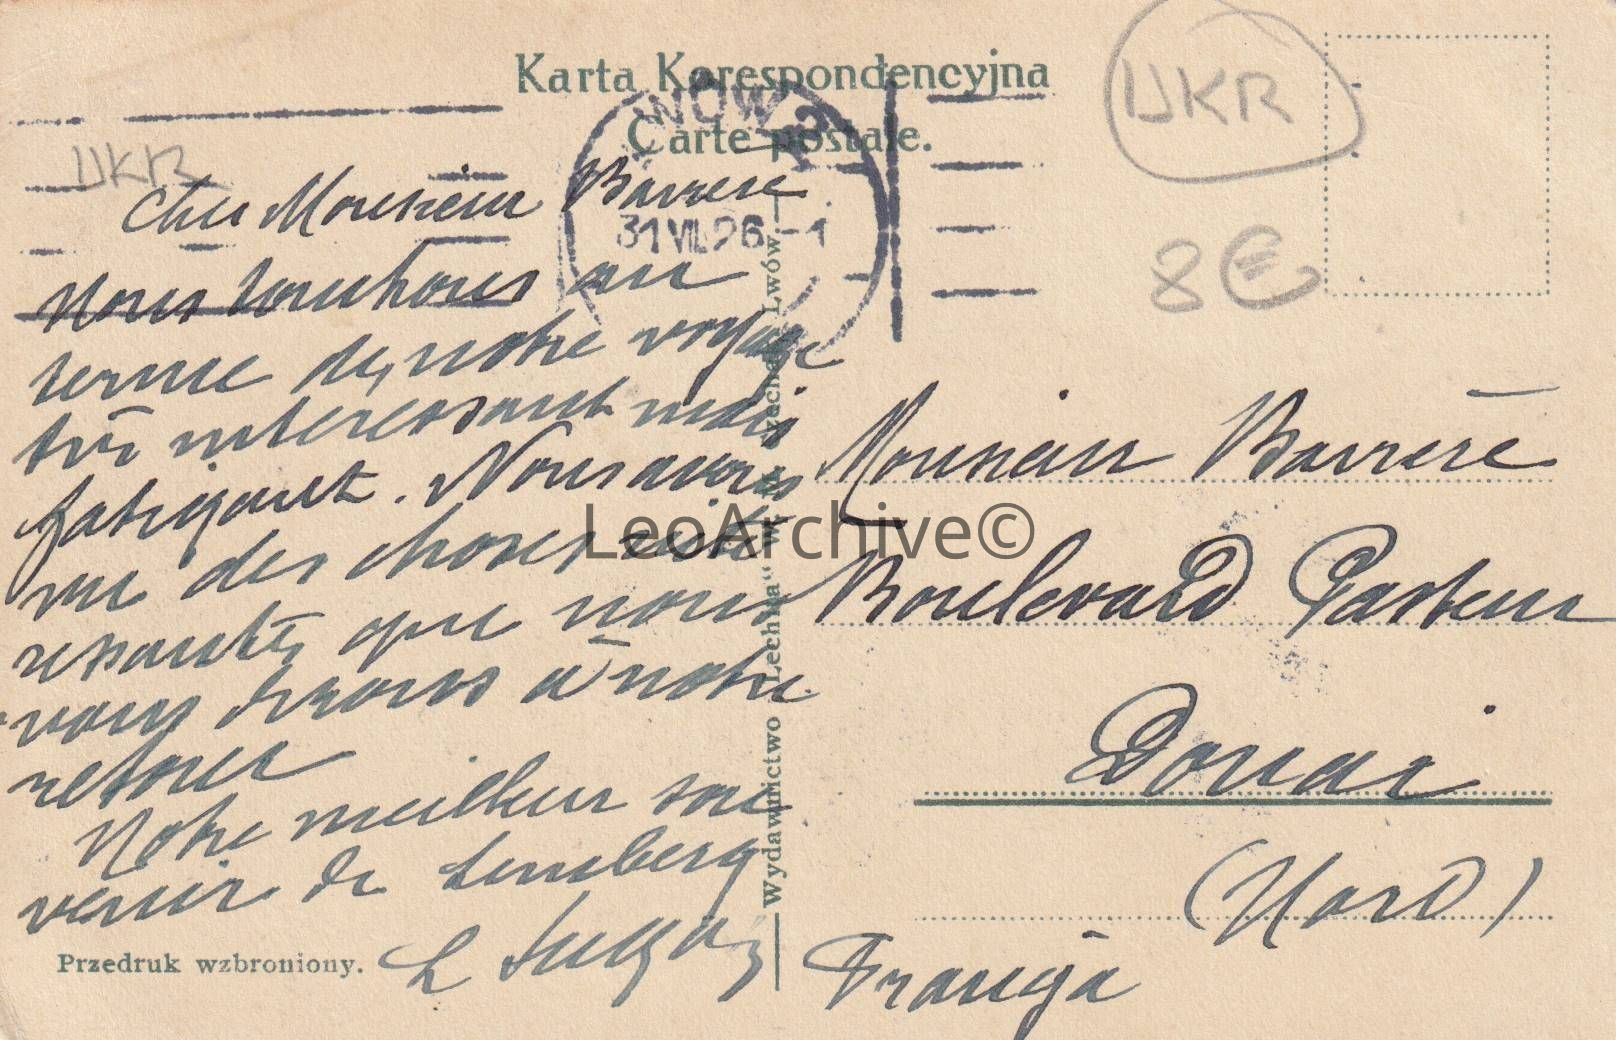 Karta Korespondencyjna
Carte postale.
UKR
UKR
8 €
LWÓW
31 VII 26 - 1
Cher Monsieur Barrere
Nous touchons au
terme de notre voyage
très interessant mais
fatigant. Nous avons
vu des choses inté
ressantes que nous
vous dirons à notre
retour
Notre meilleur sou
venir de Lemberg
L
Monsieur Barrère
Boulevard Pasteur
Douai
(Nord)
Francja
Przedruk wzbroniony.
Wydawnictwo „Lechitia” w Lwów.
LeoArchive©